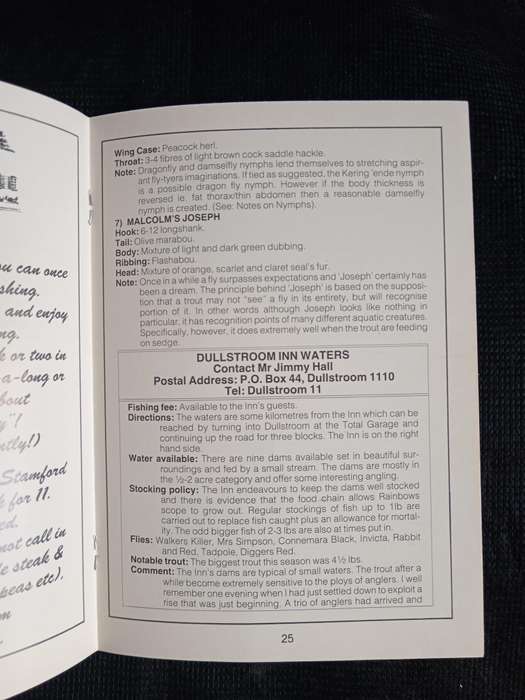 ou can once
shing.
and enjoy
ng.
k or two in
a-long or
bout
y"!
ntly!)
Stamford
k for 11.
ed.
not call in
le steak &
peas etc).
m
Wing Case: Peacock herl.
Throat: 3-4 fibres of light brown cock saddle hackle.
Note: Dragonfly and damselfly nymphs lend themselves to stretching aspir-
ant fly-tyers imaginations. If tied as suggested, the Kering 'ende nymph
is a possible dragon fly nymph. However if the body thickness is
reversed ie. fat thorax/thin abdomen then a reasonable damselfly
nymph is created. (See: Notes on Nymphs).
7) MALCOLM'S JOSEPH
Hook: 6-12 longshank.
Tail: Olive marabou.
Body: Mixture of light and dark green dubbing.
Ribbing: Flashabou.
Head: Mixture of orange, scarlet and claret seal's fur.
Note: Once in a while a fly surpasses expectations and 'Joseph' certainly has
been a dream. The principle behind 'Joseph' is based on the supposi-
tion that a trout may not "see" a fly in its entirety, but will recognise
portion of it. In other words although Joseph looks like nothing in
particular, it has recognition points of many different aquatic creatures.
Specifically, however, it does extremely well when the trout are feeding
on sedge.
DULLSTROOM INN WATERS
Contact Mr Jimmy Hall
Postal Address: P.O. Box 44, Dullstroom 1110
Tel: Dullstroom 11
Fishing fee: Available to the Inn's guests.
Directions: The waters are some kilometres from the Inn which can be
reached by turning into Dullstroom at the Total Garage and
continuing up the road for three blocks. The Inn is on the right
hand side.
Water available: There are nine dams available set in beautiful sur-
roundings and fed by a small stream. The dams are mostly in
the ½-2 acre category and offer some interesting angling.
Stocking policy: The Inn endeavours to keep the dams well stocked
and there is evidence that the food chain allows Rainbows
scope to grow out. Regular stockings of fish up to 1lb are
carried out to replace fish caught plus an allowance for mortal-
ity. The odd bigger fish of 2-3 lbs are also at times put in.
Flies: Walkers Killer, Mrs Simpson, Connemara Black, Invicta, Rabbit
and Red, Tadpole, Diggers Red.
Notable trout: The biggest trout this season was 4½ lbs.
Comment: The Inn's dams are typical of small waters. The trout after a
while become extremely sensitive to the ploys of anglers. I well
remember one evening when I had just settled down to exploit a
rise that was just beginning. A trio of anglers had arrived and
25